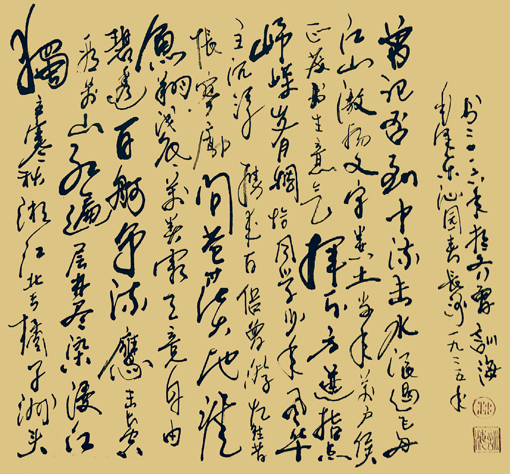 獨立寒秋湘江北去橘子洲头
看萬山红遍层林尽染漫江
碧透百舸争流鹰击长空
鱼翔浅底万类霜天竞自由
怅寥廓问苍茫大地谁
主沉浮携来百侣曾游忆往昔
峥嵘岁月稠恰同学少年风华
正茂书生意气挥斥方遒指点
江山激扬文字粪土当年万户侯
曾记否到中流击水浪遏飞舟
毛泽东沁园春长沙一九二五年
书二〇一六年 訓海